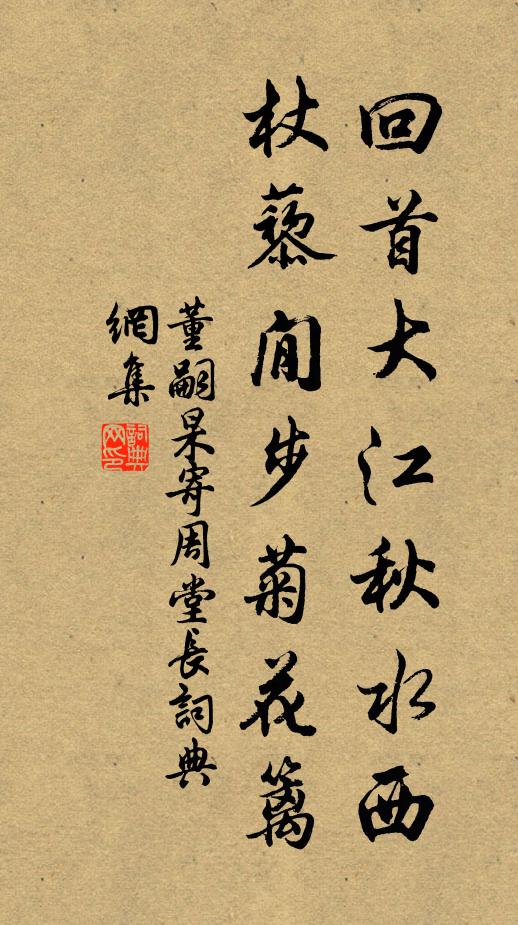 回首大江秋水西
杖藜閒步菊花籬
董嗣杲寄周堂長詞典
網集
詞典網印